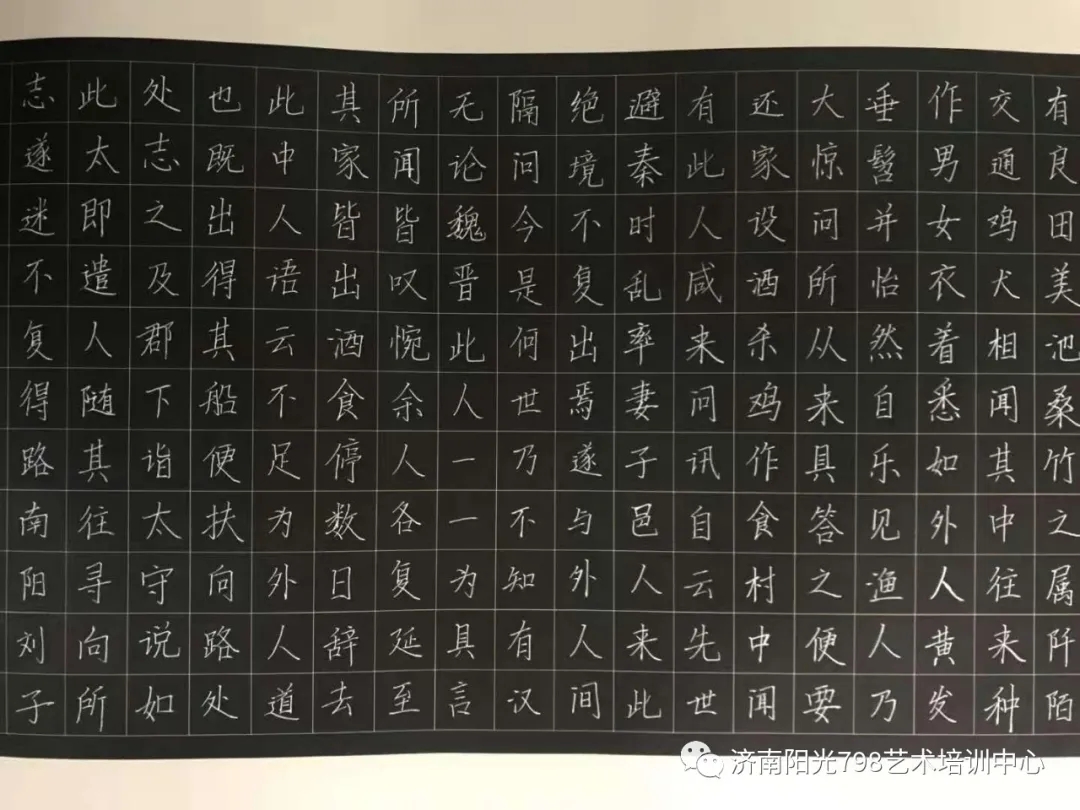 有良田美池桑竹之属阡陌
交通鸡犬相闻其中往来种
作男女衣着悉如外人黄发
垂髫并怡然自乐见渔人乃
大惊问所从来具答之便要
还家设酒杀鸡作食村中闻
有此人咸来问讯自云先世
避秦时乱率妻子邑人来此
绝境不复出焉遂与外人间
隔问今是何世乃不知有汉
无论魏晋此人一一为具言
所闻皆叹惋余人各复延至
其家皆出酒食停数日辞去
此中人语云不足为外人道
也既出得其船便扶向路处
处志之及郡下诣太守说如
此太即遣人随其往寻向所
志遂迷不复得路南阳刘子
济南阳光798艺术培训中心